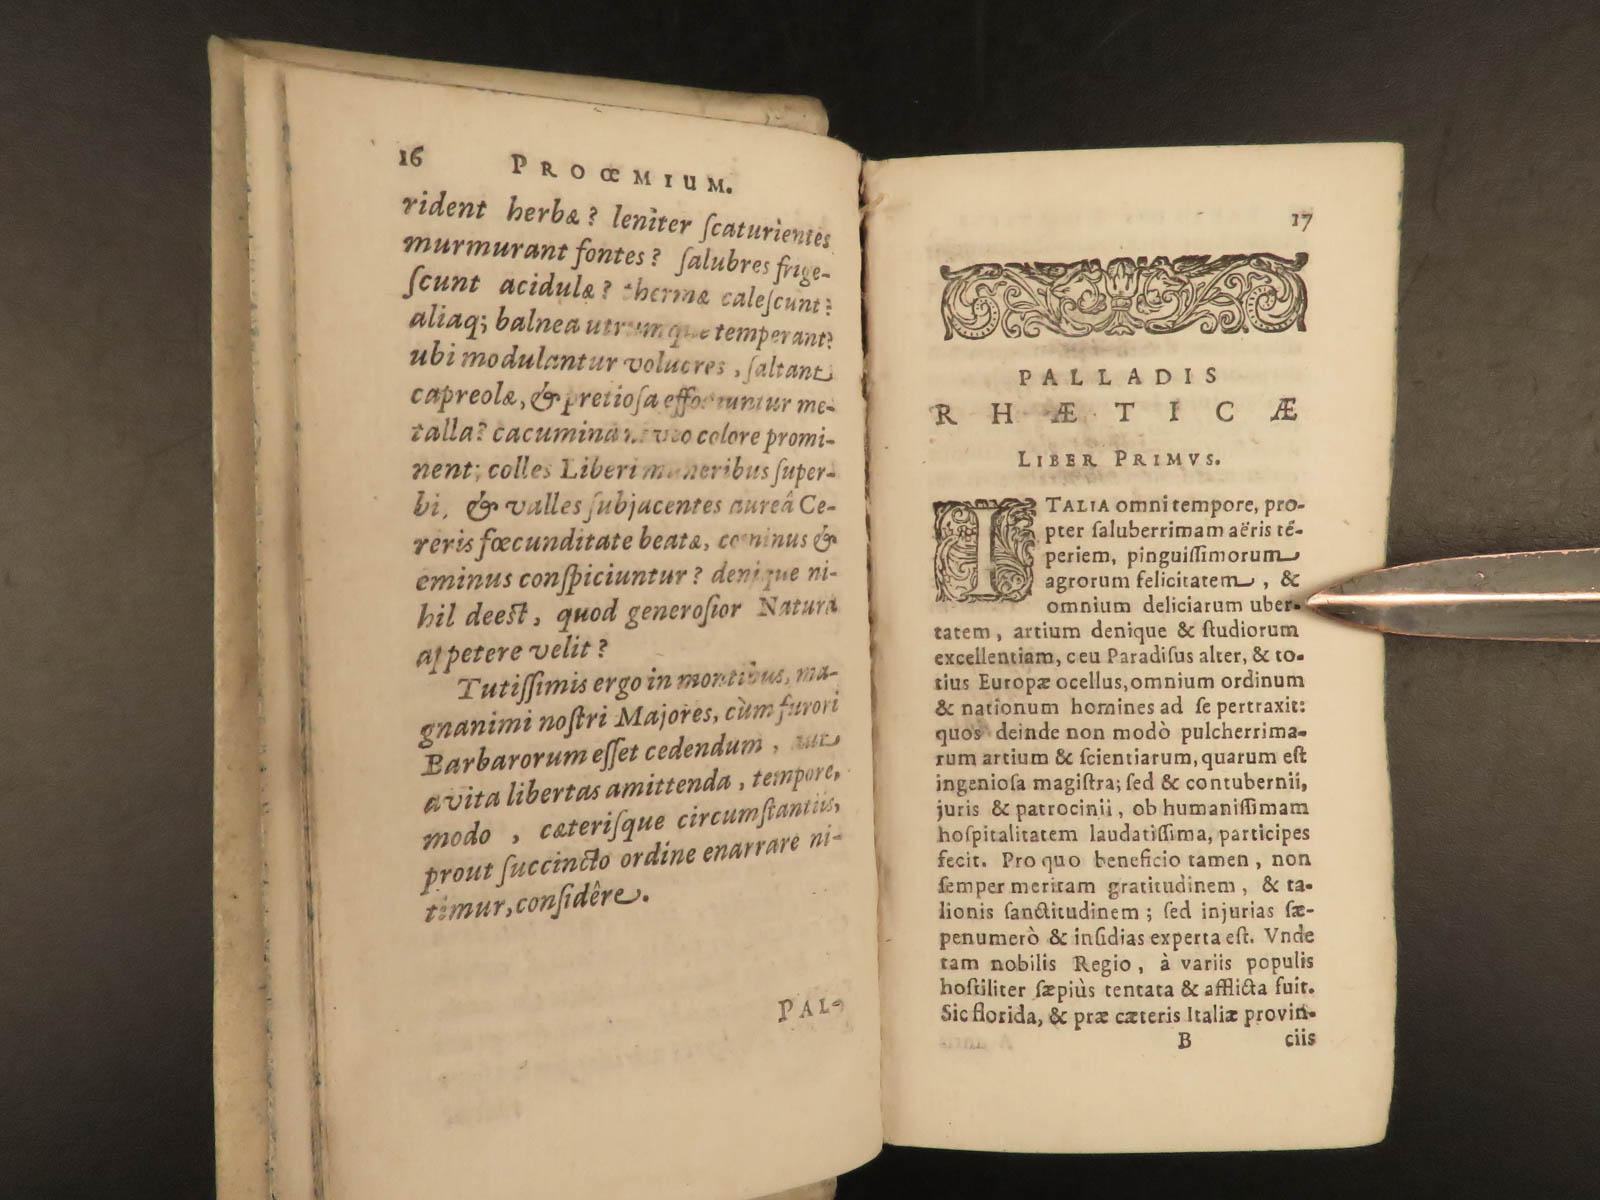 16 PROŒMIUM.
rident herbæ? leniter ſcaturientes
murmurant fontes? ſalubres frige-
ſcunt acidulæ? thermæ caleſcunt?
aliaq; balnea utrumque temperant?
ubi modulantur volucres, ſaltant
capreolæ, & pretioſa effodiuntur me-
talla? cacumina niveo colore promi-
nent; colles Liberi muneribus ſuper-
bi, & valles ſubjacentes aureâ Ce-
reris fœcunditate beatæ, cominus &
eminus conſpiciuntur? denique ni-
hil deest, quod generoſior Natura
appetere velit?
Tutiſſimis ergo in montibus, ma-
gnanimi noſtri Majores, cùm furori
Barbarorum eſſet cedendum, aut
avita libertas amittenda, tempore,
modo, cæteriſque circumſtantiis,
prout ſuccincto ordine enarrare ni-
timur, conſidêre.
PAL-
17
PALLADIS
RHÆTICÆ
LIBER PRIMVS.
ITALIA omni tempore, pro-
pter ſaluberrimam aëris té-
periem, pinguiſſimorum
agrorum felicitatem, &
omnium deliciarum uber-
tatem, artium denique & ſtudiorum
excellentiam, ceu Paradiſus alter, & to-
tius Europæ ocellus, omnium ordinum
& nationum homines ad ſe pertraxit:
quos deinde non modò pulcherrima-
rum artium & ſcientiarum, quarum eſt
ingenioſa magiſtra; ſed & contubernii,
juris & patrocinii, ob humaniſſimam
hoſpitalitatem laudatiſſima, participes
fecit. Pro quo beneficio tamen, non
ſemper meritam gratitudinem, & ta-
lionis ſanctitudinem; ſed injurias ſæ-
penumerò & inſidias experta eſt. Vnde
tam nobilis Regio, à variis populis
hoſtiliter ſæpiùs tentata & afflicta fuit.
Sic florida, & præ cæteris Italiæ provin-
B ciis